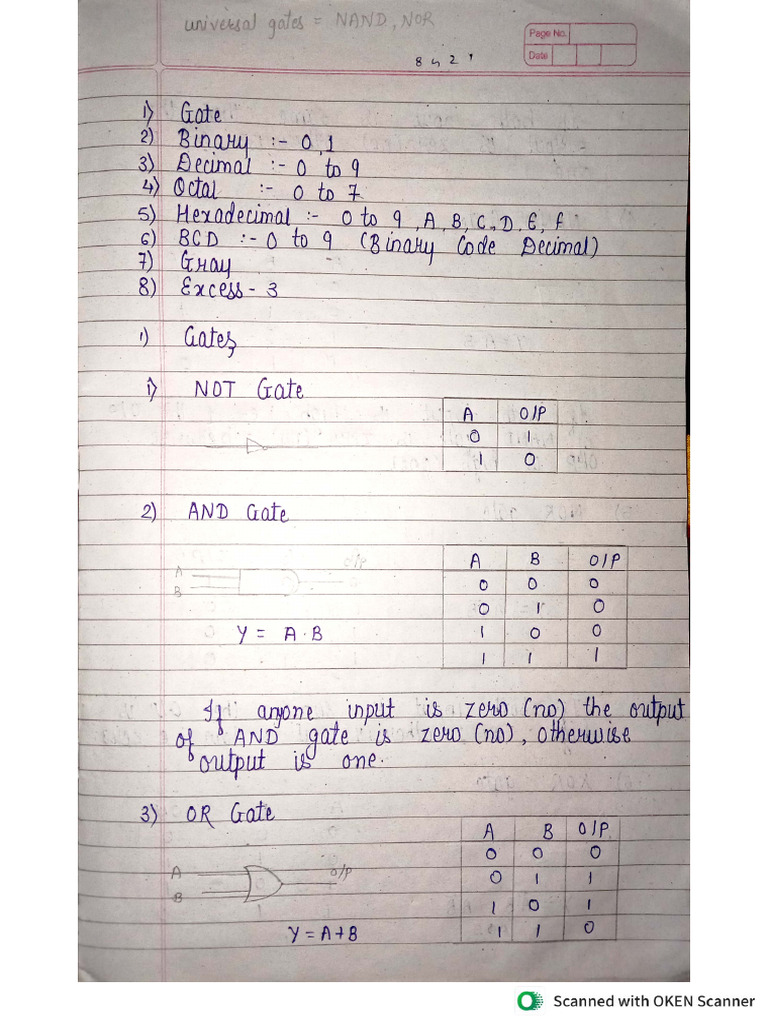 universal gates = NAND, NOR
Page No.
Date
8 4 2 1
1) Gate
2) Binary :- 0,1
3) Decimal :- 0 to 9
4) Octal :- 0 to 7
5) Hexadecimal :- 0 to 9, A, B, C, D, E, F
6) BCD :- 0 to 9 (Binary Code Decimal)
7) Gray
8) Excess - 3
1) Gates,
1) NOT Gate
A O/P
0 1
1 0
2) AND Gate
A B O/P
A O/P
B
0 0 0
0 1 0
1 0 0
1 1 1
Y = A.B
If anyone input is zero (no) the output
of AND gate is zero (no), otherwise
output is one.
3) OR Gate
A B O/P
0 0 0
0 1 1
1 0 1
1 1 0
A O/P
B
Y = A+B
Scanned with OKEN Scanner